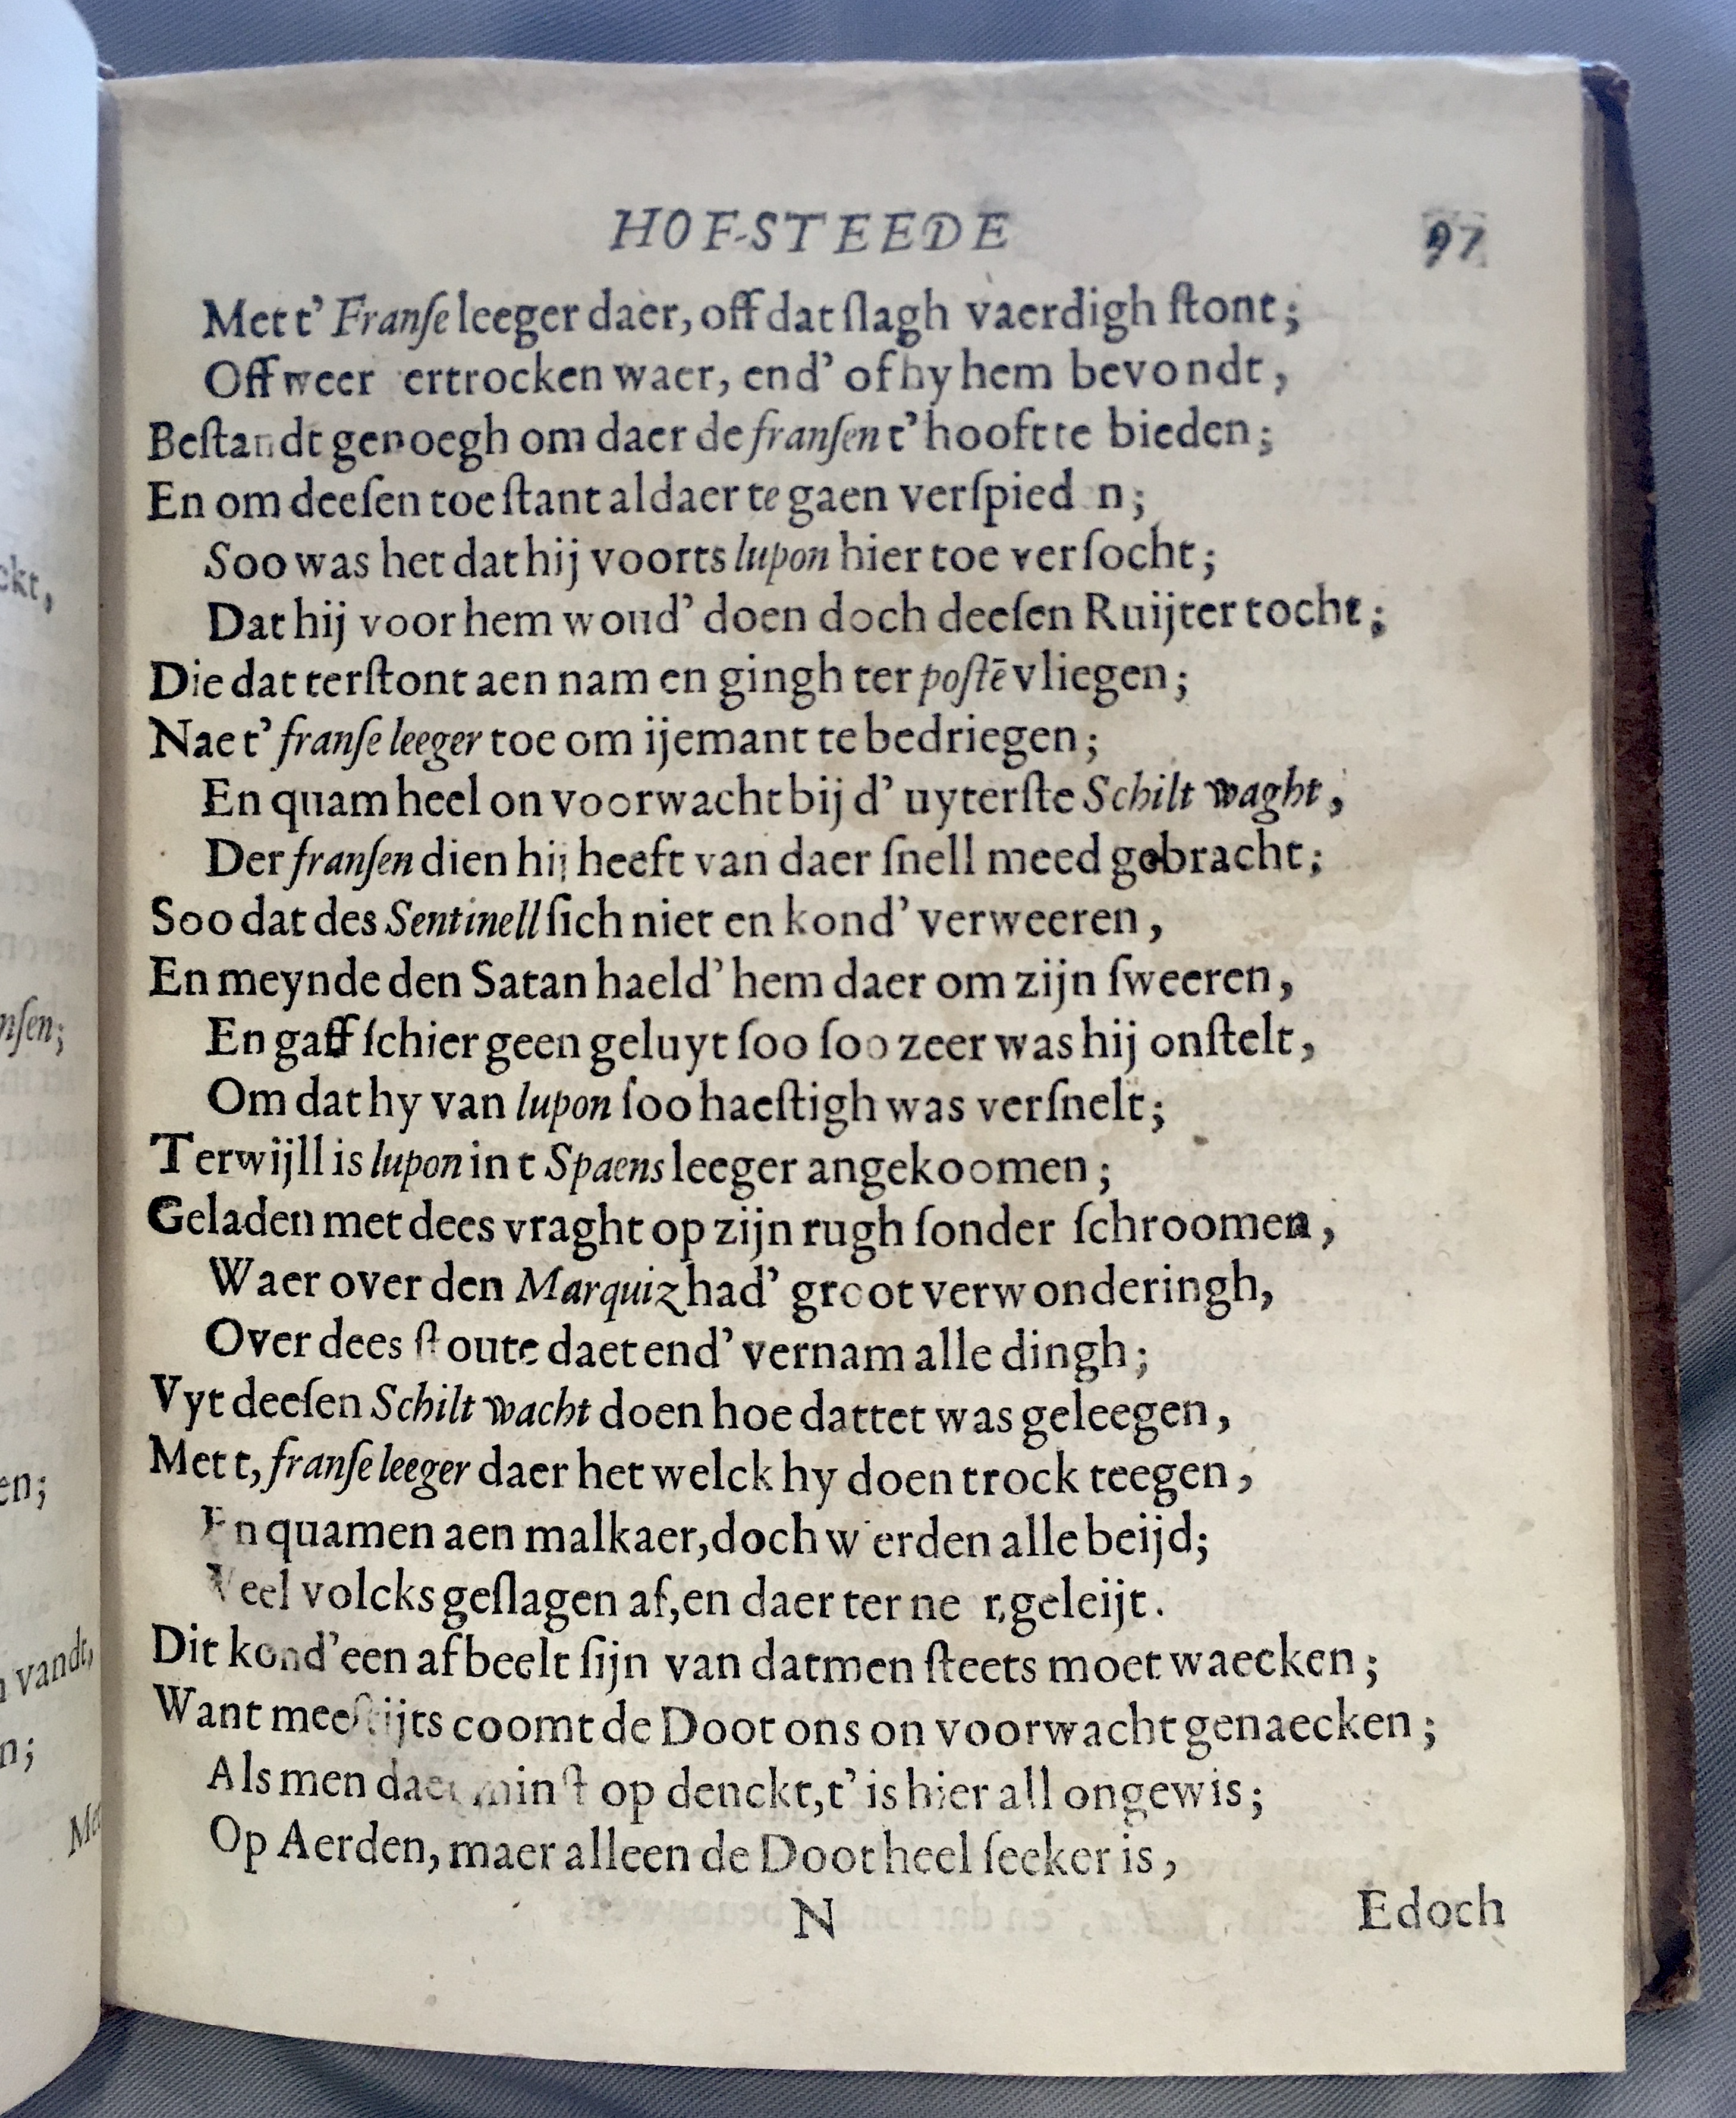 HOF-STEEDE 97
Met t' Franſe leeger daer, off dat ſlagh vaerdigh ſtont;
Off weer ertrocken waer, end' of hy hem bevondt,
Beſtandt genoegh om daer de franſen t' hooft te bieden;
En om deeſen toe ſtant aldaer te gaen verſpied n;
Soo was het dat hij voorts lupon hier toe verſocht;
Dat hij voor hem woud' doen doch deeſen Ruijter tocht;
Die dat terſtont aen nam en gingh ter poſtē vliegen;
Nae t' franſe leeger toe om ijemant te bedriegen;
En quam heel on voorwacht bij d' uyterſte Schilt waght,
Der franſen dien hij heeft van daer ſnell meed gebracht;
Soo dat des Sentinell ſich niet en kond' verweeren,
En meynde den Satan haeld' hem daer om zijn ſweeren,
En gaff ſchier geen geluyt ſoo ſoo zeer was hij onſtelt,
Om dat hy van lupon ſoo haeſtigh was verſnelt;
Terwijll is lupon in t Spaens leeger angekoomen;
Geladen met dees vraght op zijn rugh ſonder ſchroomen,
Waer over den Marquiz had' groot verwonderingh,
Over dees ſtoute daet end' vernam alle dingh;
Vyt deeſen Schilt wacht doen hoe dattet was geleegen,
Met t, franſe leeger daer het welck hy doen trock teegen,
En quamen aen malkaer, doch w erden alle beijd;
Veel volcks geſlagen af, en daer ter ne r, geleijt.
Dit kond' een afbeelt ſijn van datmen ſteets moet waecken;
Want meeſtijts coomt de Doot ons on voorwacht genaecken;
Als men daer minſt op denckt, t' is hier all ongewis;
Op Aerden, maer alleen de Doot heel ſeeker is,
N Edoch
ckt,
nſen;
en;
n vandt,
n;
Met